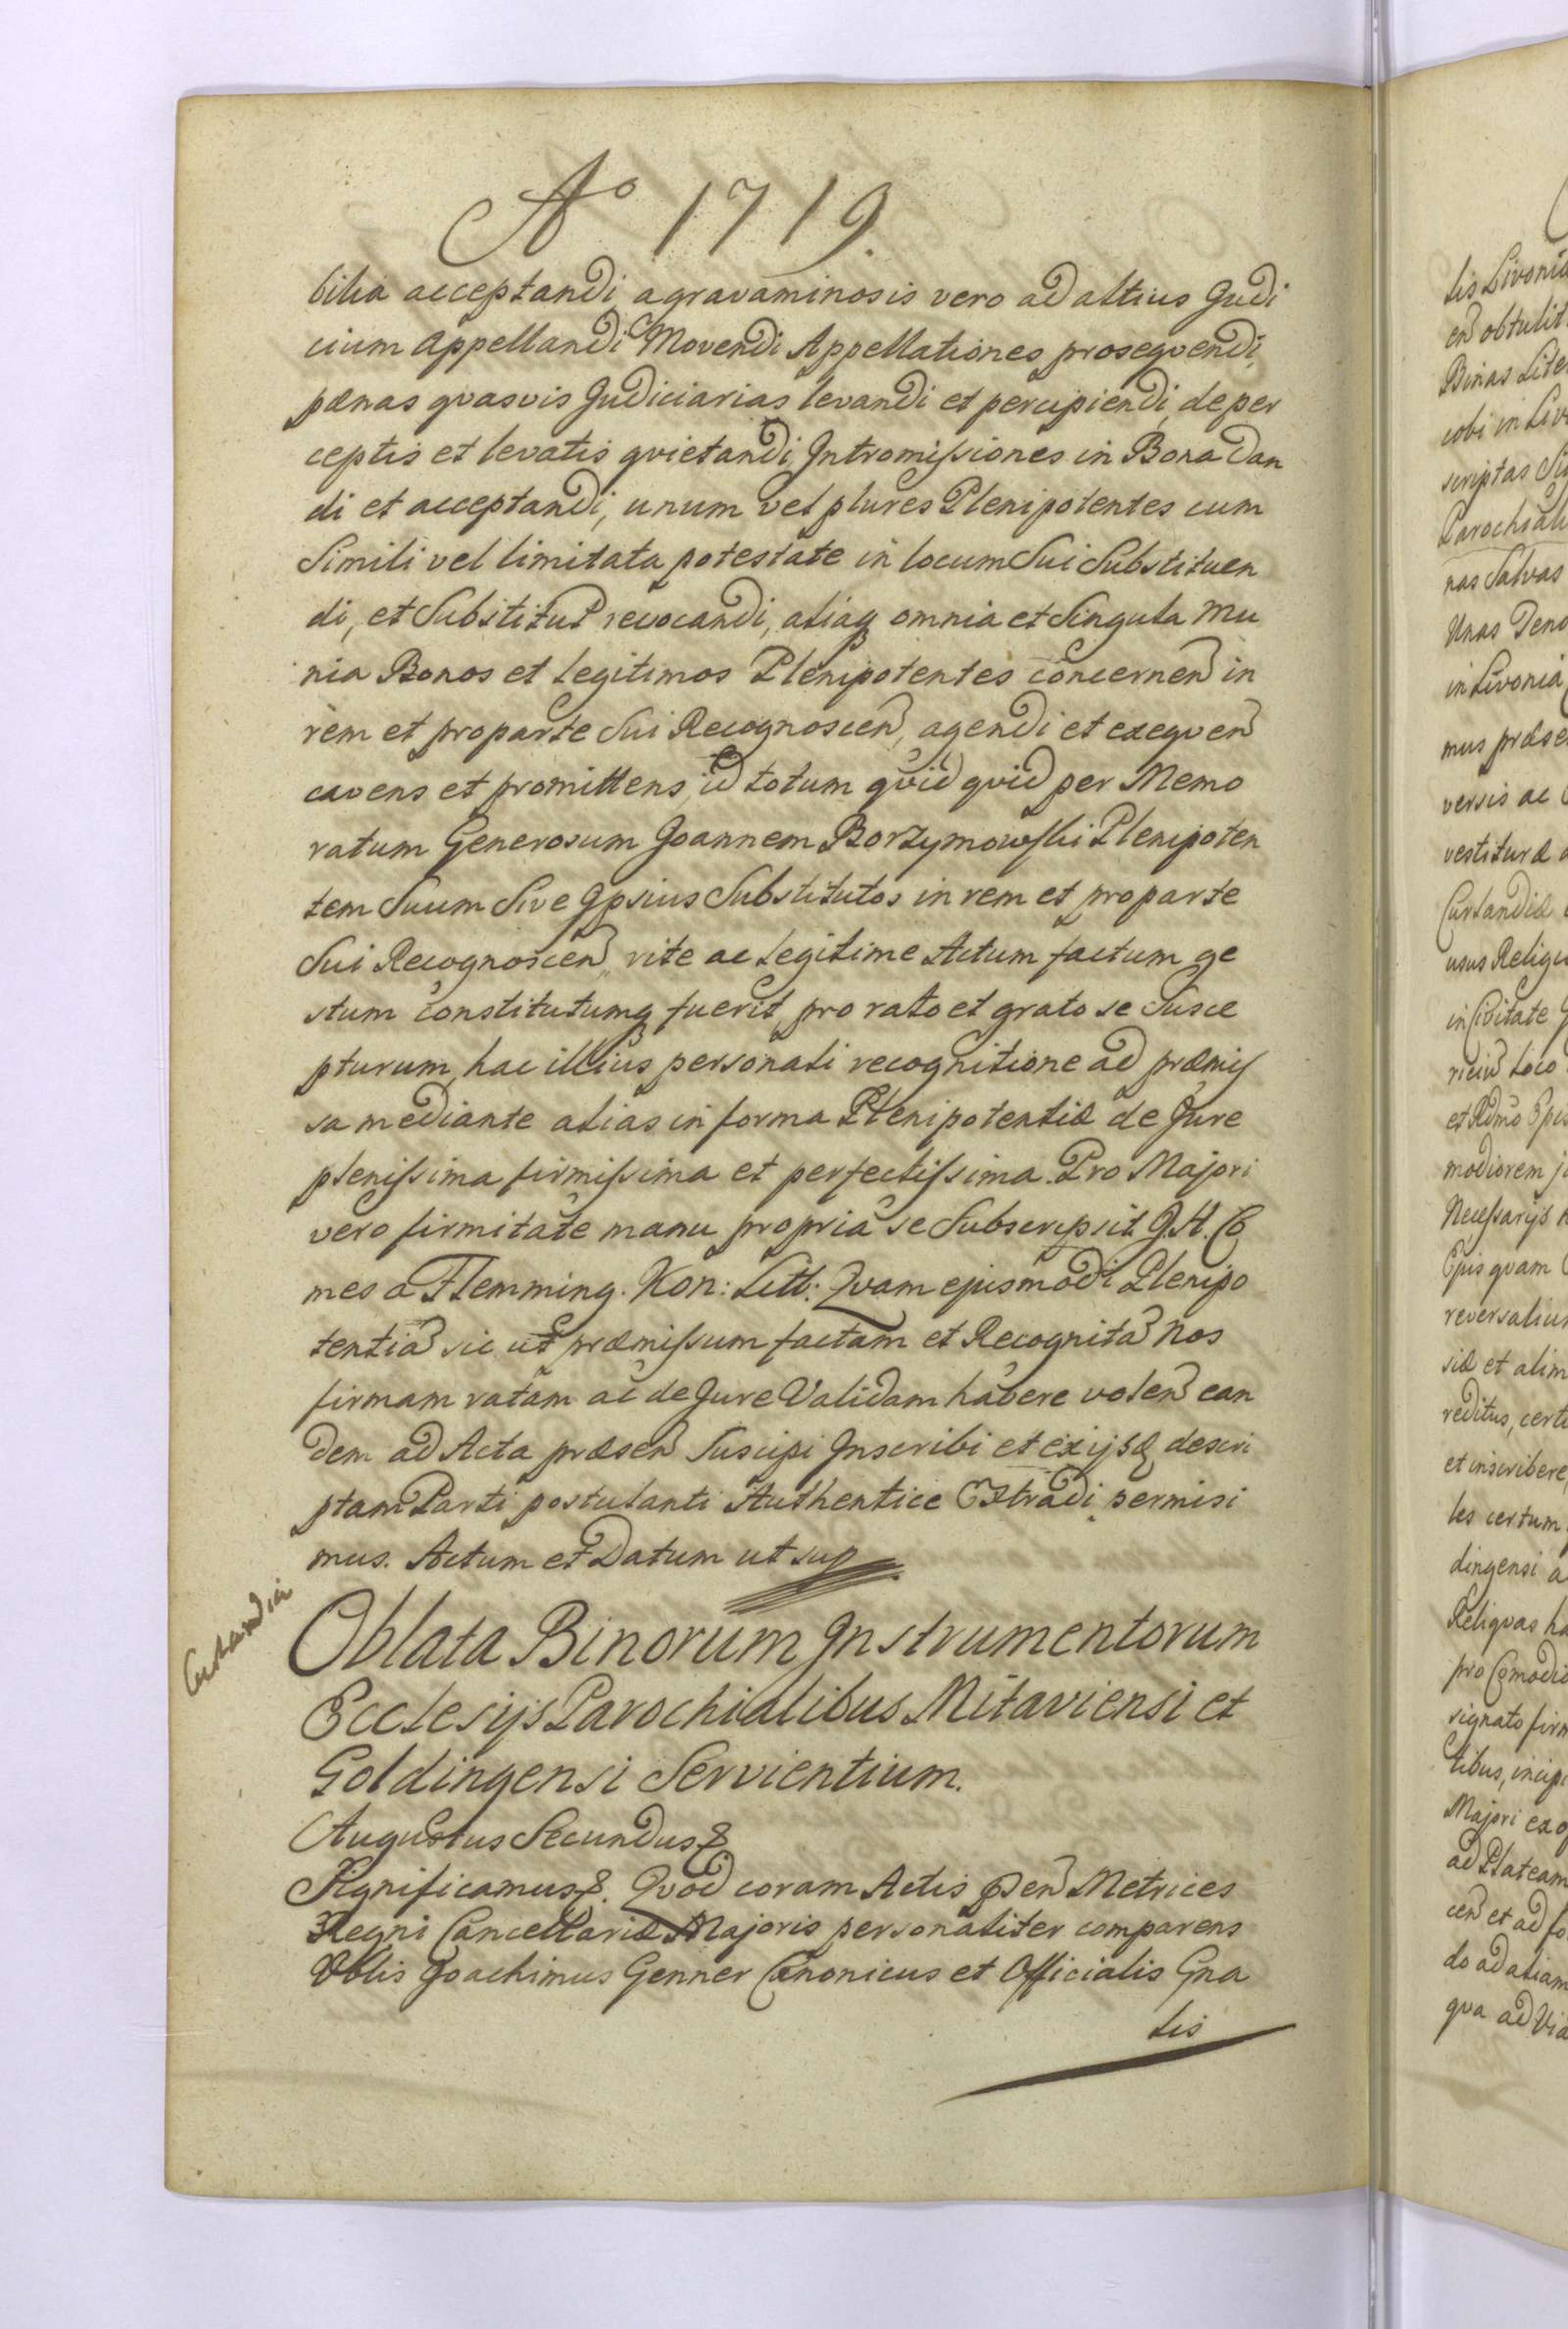 Aº 1719.
bilia acceptandi, a gravaminosis vero ad altius Judi
cium Appellandi Movendi Appellationes prosequendi,
pænas quasvis Judiciarias levandi et percipiendi, de per
ceptis et levatis quietandi, Intromissiones in Bona Dan
di et acceptandi, unum vel plures Plenipotentes cum
Simili vel limitata potestate in locum Sui Substituen
di, et Substitut revocandi, aliaq omnia et Singula Mu
nia Bonos et Legitimos Plenipotentes concernen in
rem et pro parte Sui Recognoscen, agendi et exequen
cavens et promittens, id totum quid quid per Memo
ratum Generosum Joannem Borzymowski Plenipoten
tem Suum Sive Ipsius Substitutos in rem et pro parte
Sui Recognoscen, rite ac Legitime Actum factum ge
stum constitutumq fuerit, pro rato et grato se Susce
pturum, hac illius personali recognitione ad præmis
sa mediante alias in forma Plenipotentiæ de Jure
plenissima firmissima et perfectissima. Pro Majori
vero firmitate manu propria se Subscripsit. J. H. Co
mes a Flemming. Kon: Litt: Quam ejusmodi Plenipo
tentia sic ut præmissum factam et Recognita Nos
firmam ratam ac de Jure Validam habere volen ean
dem ad Acta præsen Suscipi Inscribi et ex ijsd descri
ptam Parti postulanti Authentice Extradi permisi
mus. Actum et Datum ut sup
Curlandia
Oblata Binorum Instrumentorum
Ecclesijs Parochialibus Mitaviensi et
Goldingensi Servientium.
Augustus Secundus &
Significamus &. Quod coram Actis psen Metrices
Regni Cancellariæ Majoris personaliter comparens
Vblis Joachimus Genner Canonicus et Officialis Gna
lis
lis Livonia
en obtulit
Binas Lite
cobi in Liv
scriptas Sig
Parochiali
nas Salvas
Unas Deno
in Livonia
mus præse
versis ac
vestituræ
Curlandiæ
usus Religi
in Civitate
loco
modiorem
Necessarijs
quam
reversaliu
siæ et alim
reditus, cert
et inscribere,
les certum
dingensi a
Reliquas ha
pro Comodi
signato firm
tibus, incipi
Majori ex
ad Plateam
cen et ad fo
do ad aliam
qua ad Via